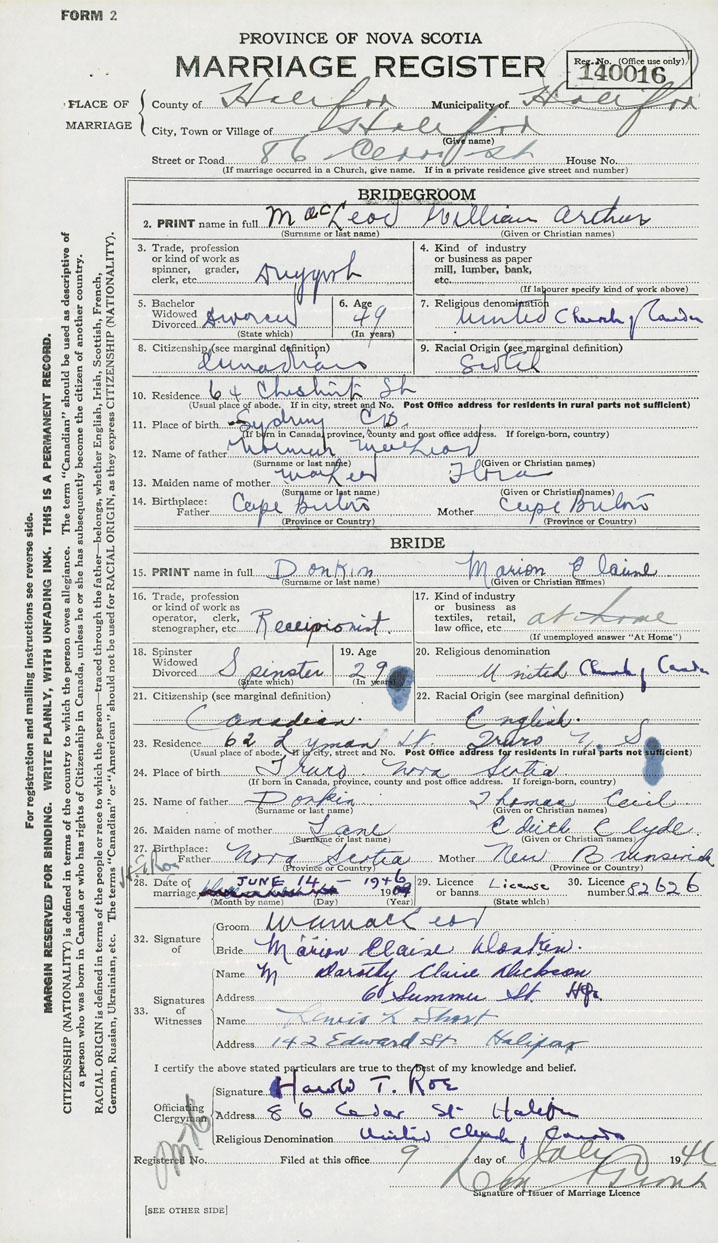 FORM 2
PROVINCE OF NOVA SCOTIA
MARRIAGE REGISTER
Reg. No. (Office use only)
140016
PLACE OF MARRIAGE
County of Halifax Municipality of Halifax
City, Town or Village of Halifax
(Give name)
Street or Road 86 Cedar St House No.
(If marriage occurred in a Church, give name. If in a private residence give street and number)
BRIDEGROOM
2. PRINT name in full MacLeod William Arthur
(Surname or last name) (Given or Christian names)
3. Trade, profession or kind of work as spinner, grader, clerk, etc. Druggist
4. Kind of industry or business as paper mill, lumber, bank, etc.
(If labourer specify kind of work above)
5. Bachelor Widowed Divorced Divorced
(State which)
6. Age 49
(In years)
7. Religious denomination United Church of Canada
8. Citizenship (see marginal definition) Canadian
9. Racial Origin (see marginal definition) Scotch
10. Residence 64 Cheshire St
(Usual place of abode. If in city, street and No. Post Office address for residents in rural parts not sufficient)
11. Place of birth Sydney C B.
(If born in Canada, province, county and post office address. If foreign-born, country)
12. Name of father Norman MacLeod
(Surname or last name) (Given or Christian names)
13. Maiden name of mother MacLeod Flora
(Surname or last name) (Given or Christian names)
14. Birthplace: Father Cape Breton Mother Cape Breton
(Province or Country) (Province or Country)
BRIDE
15. PRINT name in full Donkin Marion Claire
(Surname or last name) (Given or Christian names)
16. Trade, profession or kind of work as operator, clerk, stenographer, etc. Receipionist.
17. Kind of industry or business as textiles, retail, law office, etc. at home
(If unemployed answer "At Home")
18. Spinster Widowed Divorced Spinster
(State which)
19. Age 29
(In years)
20. Religious denomination United Church of Canada
21. Citizenship (see marginal definition) Canadian.
22. Racial Origin (see marginal definition) English.
23. Residence 62 Lyman St. Truro N. S
(Usual place of abode. If in city, street and No. Post Office address for residents in rural parts not sufficient)
24. Place of birth Truro Nova Scotia
(If born in Canada, province, county and post office address. If foreign-born, country)
25. Name of father Donkin Thomas Cecil
(Surname or last name) (Given or Christian names)
26. Maiden name of mother Lane Edith Clyde.
(Surname or last name) (Given or Christian names)
27. Birthplace: Father Nova Scotia Mother New Brunswick
(Province or Country) (Province or Country)
28. Date of marriage JUNE 14 - 1946
(Month by name) (Day) (Year)
29. Licence or banns License
(State which)
30. Licence number 82626
32. Signature of
Groom W A MacLeod
Bride Marion Claire Donkin.
33. Signatures of Witnesses
Name M Dorothy Claire Dickson
Address 6 Summer St Hfx.
Name Lewis L Short
Address 142 Edward St Halifax
I certify the above stated particulars are true to the best of my knowledge and belief.
Officiating Clergyman
Signature Harold T. Roe
Address 86 Cedar St Halifax
Religious Denomination United Church of Canada
Registered No. Filed at this office 9 day of July 1946
Signature of Issuer of Marriage Licence
[SEE OTHER SIDE]
For registration and mailing instructions see reverse side.
MARGIN RESERVED FOR BINDING. WRITE PLAINLY, WITH UNFADING INK. THIS IS A PERMANENT RECORD.
CITIZENSHIP (NATIONALITY) is defined in terms of the country to which the person owes allegiance. The term "Canadian" should be used as descriptive of
a person who was born in Canada or who has rights of Citizenship in Canada, unless he or she has subsequently become the citizen of another country.
RACIAL ORIGIN is defined in terms of the people or race to which the person—traced through the father—belongs, whether English, Irish, Scottish, French,
German, Russian, Ukrainian, etc. The terms "Canadian" or "American" should not be used for RACIAL ORIGIN, as they express CITIZENSHIP (NATIONALITY).